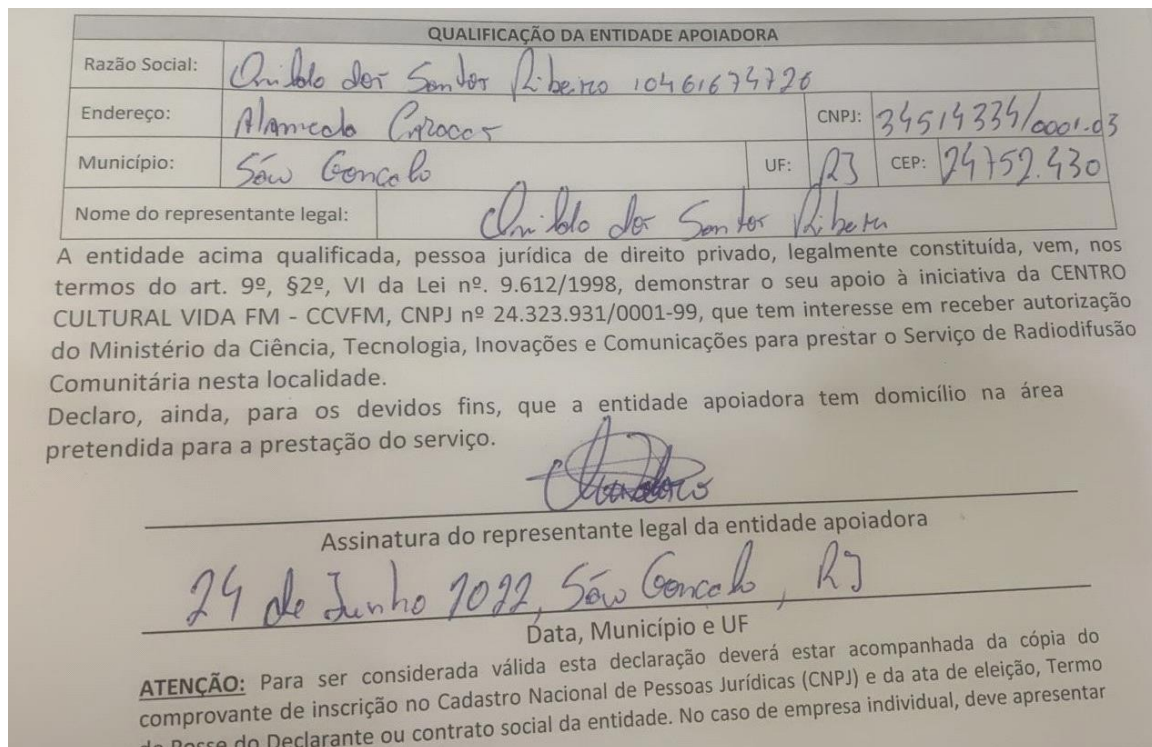 QUALIFICAÇÃO DA ENTIDADE APOIADORA
Razão Social: Onildo dos Santos Ribeiro 10461674726
Endereço: Alameda Cariocas CNPJ: 34514334/0001.03
Município: São Gonçalo UF: RJ CEP: 24752.430
Nome do representante legal: Onildo dos Santos Ribeiro
A entidade acima qualificada, pessoa jurídica de direito privado, legalmente constituída, vem, nos
termos do art. 9º, §2º, VI da Lei nº. 9.612/1998, demonstrar o seu apoio à iniciativa da CENTRO
CULTURAL VIDA FM - CCVFM, CNPJ nº 24.323.931/0001-99, que tem interesse em receber autorização
do Ministério da Ciência, Tecnologia, Inovações e Comunicações para prestar o Serviço de Radiodifusão
Comunitária nesta localidade.
Declaro, ainda, para os devidos fins, que a entidade apoiadora tem domicílio na área
pretendida para a prestação do serviço.
Assinatura do representante legal da entidade apoiadora
24 de Junho 2022, São Gonçalo, RJ
Data, Município e UF
ATENÇÃO: Para ser considerada válida esta declaração deverá estar acompanhada da cópia do
comprovante de inscrição no Cadastro Nacional de Pessoas Jurídicas (CNPJ) e da ata de eleição, Termo
de Posse do Declarante ou contrato social da entidade. No caso de empresa individual, deve apresentar